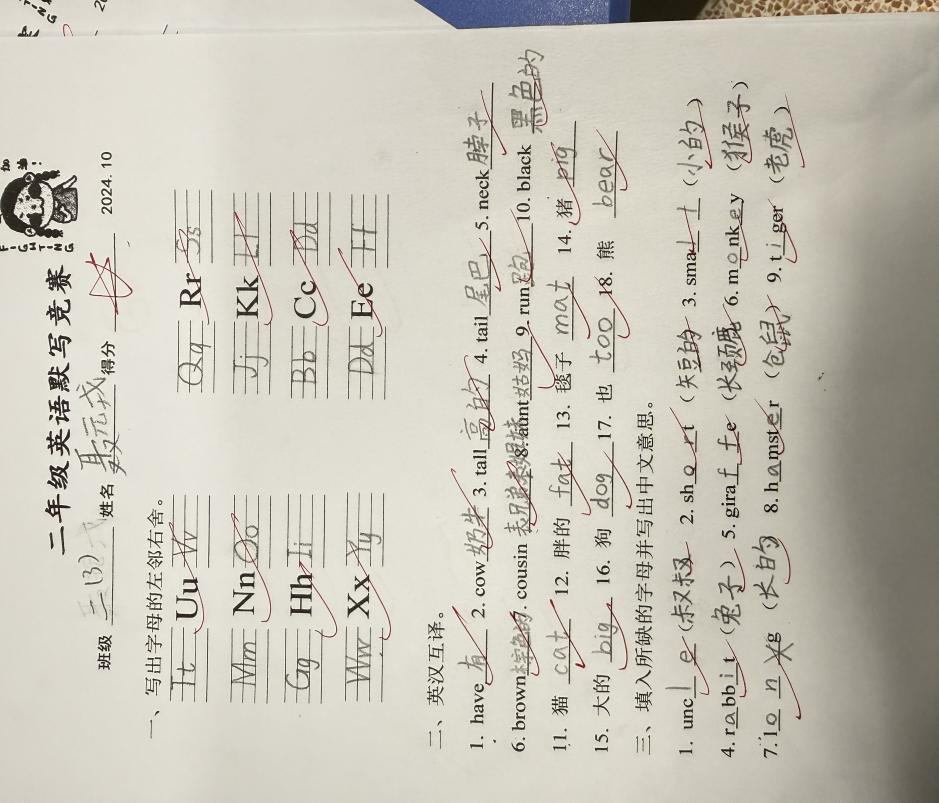 加油！
FIGHTING
二年级英语默写竞赛
班级 二(3) 姓名 聂元戎 得分 2024. 10
一、写出字母的左邻右舍。
Tt Uu Vv Qq Rr Ss
Mm Nn Oo Jj Kk Ll
Gg Hh Ii Bb Cc Dd
Ww Xx Yy Dd Ee Ff
二、英汉互译。
1. have 有 2. cow 奶牛 3. tall 高的 4. tail 尾巴 5. neck 脖子
6. brown 棕色的 7. cousin 表兄弟表姐妹 8. aunt 姑妈 9. run 跑 10. black 黑色的
11. 猫 cat 12. 胖的 fat 13. 毯子 mat 14. 猪 pig
15. 大的 big 16. 狗 dog 17. 也 too 18. 熊 bear
三、填入所缺的字母并写出中文意思。
1. uncle (叔叔) 2. short (矢豆的) 3. small (小的)
4. rabbit (兔子) 5. giraffe (长颈鹿) 6. monkey (猴子)
7. long (长的) 8. hamster (仓鼠) 9. tiger (老虎)